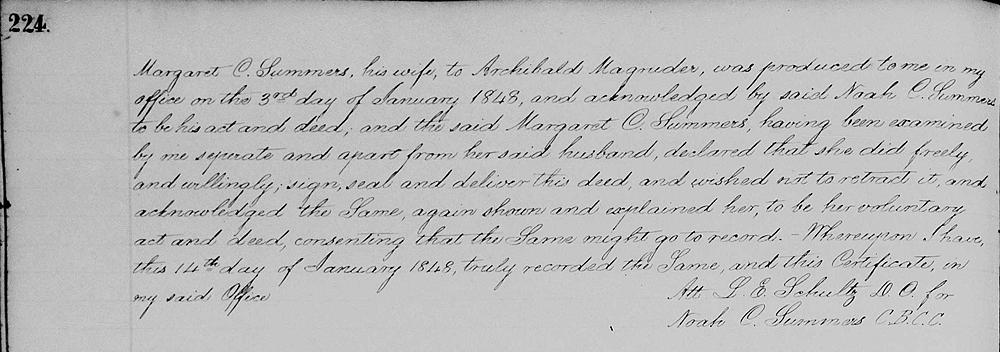 224.
Margaret C. Summers, his wife, to Archibald Magruder, was produced to me in my
office on the 3rd day of January 1848, and acknowledged by said Noah C. Summers
to be his act and deed; and the said Margaret C. Summers, having been examined
by me seperate and apart from her said husband, declared that she did freely,
and willingly; sign, seal and deliver this deed, and wished not to retract it, and
acknowledged the Same, again shown and explained her, to be her voluntary
act and deed, consenting that the Same might go to record. - Whereupon I have,
this 14th day of January 1848, truly recorded the Same, and this Certificate, in
my said Office
Att L. E. Schultz D. C. for
Noah C. Summers C.B.C.C.